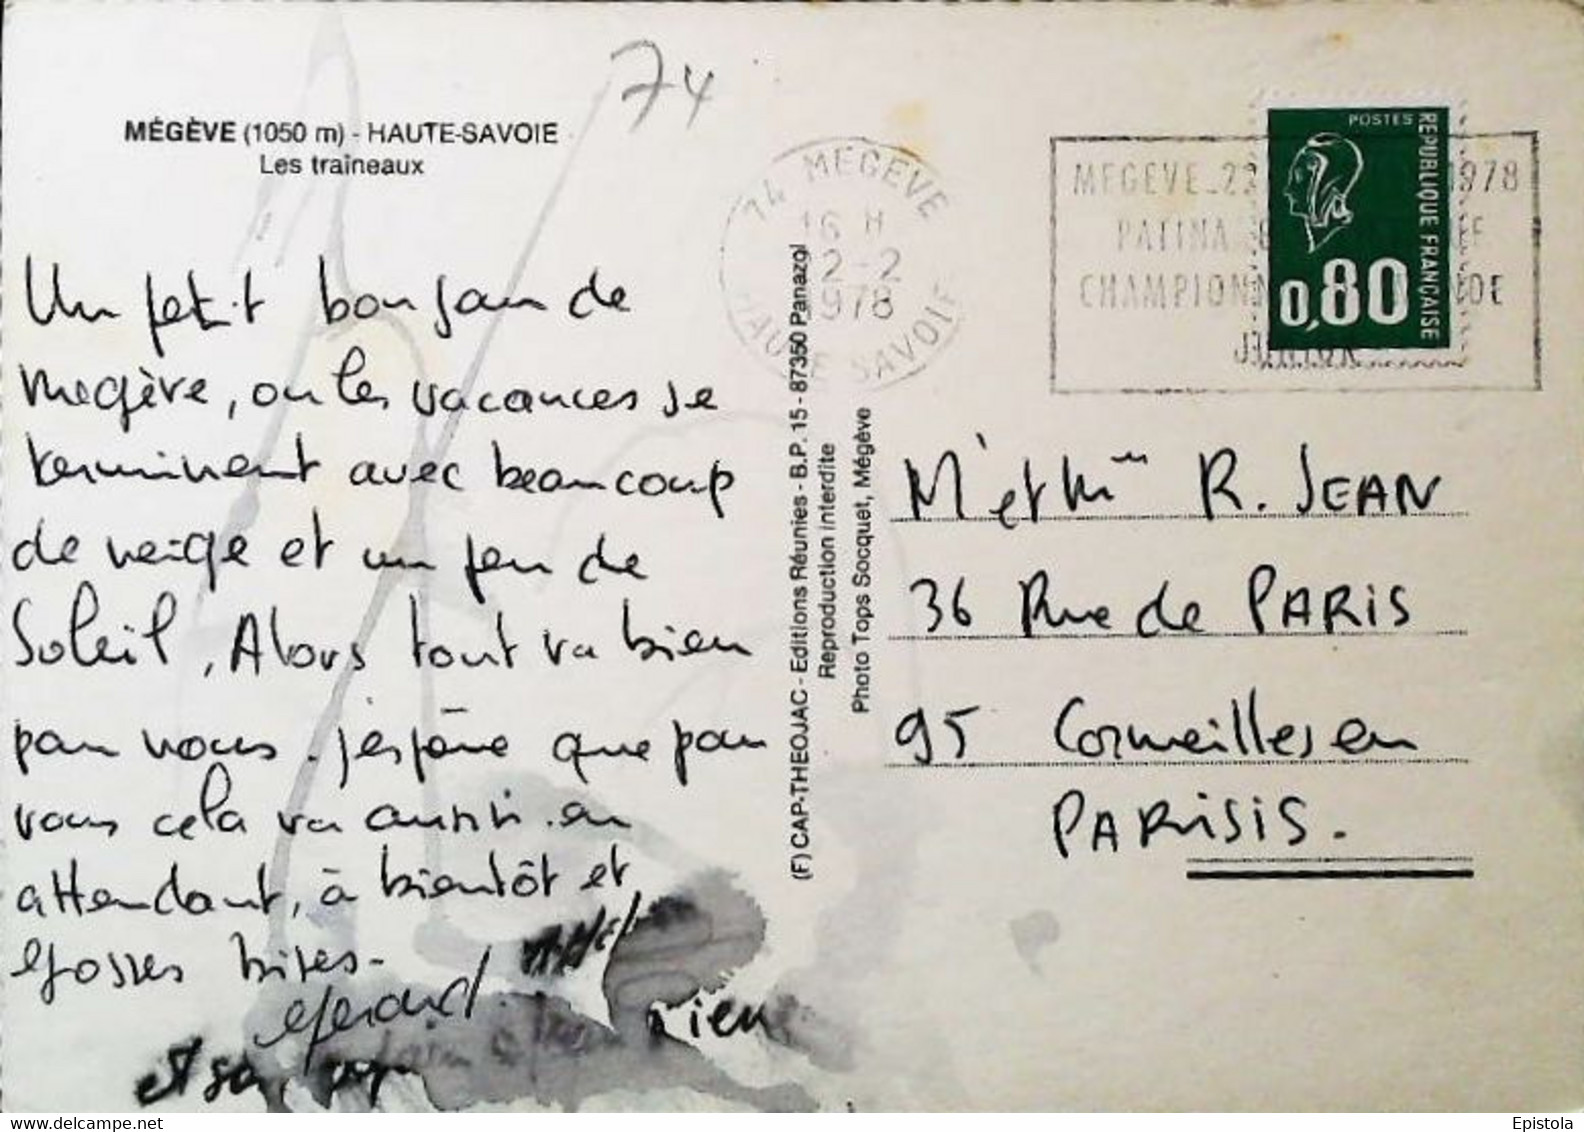 74
MÉGÈVE (1050 m) - HAUTE-SAVOIE
Les traineaux
Un petit bonjour de
Megève, ou les vacances se
terminent avec beaucoup
de neige et un peu de
Soleil. Alors tout va bien
pour nous. j'espère que pour
vous cela va aussi. en
attendant, à bientôt et
grosses bises-
gerard.
et sa
(F) CAP-THEOJAC - Editions Réunies - B.P. 15 - 87350 Panazol
Reproduction interdite
Photo Tops Socquet, Mégève
74 MEGEVE
16 H
2-2
1978
HAUTE SAVOIE
MEGEVE_22 1978
PATINA
CHAMPIONN NDE
JUNIOR
POSTES
REPUBLIQUE FRANÇAISE
0,80
Mr et Mme R. JEAN
36 Rue de PARIS
95 Cormeilles en
PARISIS.
www.delcampe.net
Epistola